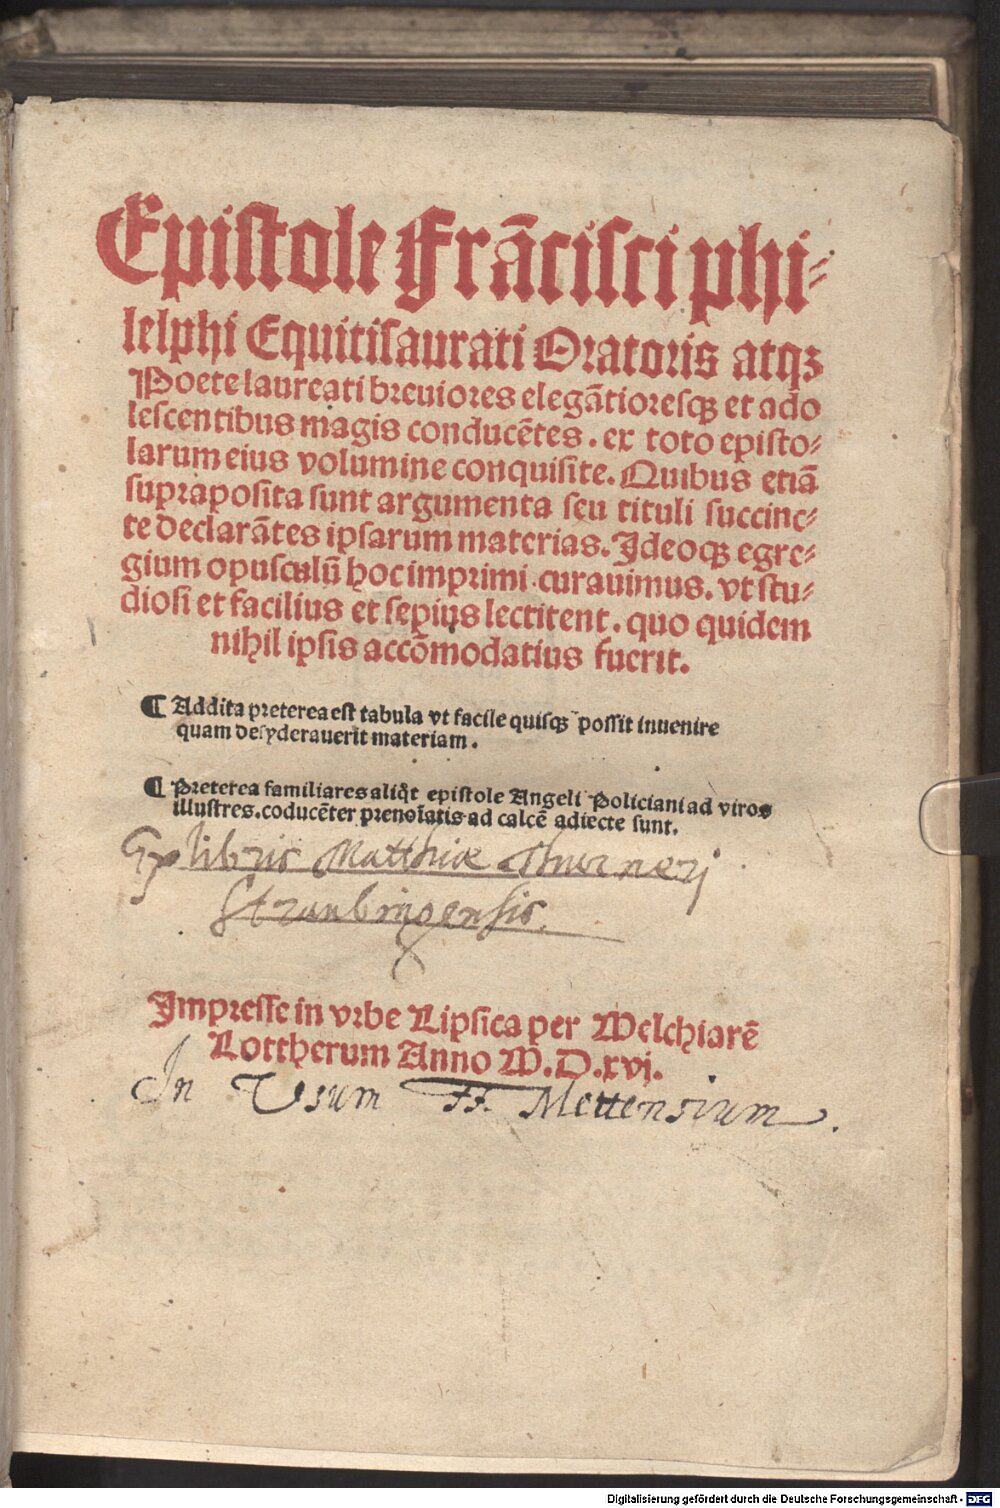 Epistole Frãcisci phi-
lelphi Equitisaurati Oratoris atqꝫ
Poete laureati breuiores elegãtioresqꝫ et ado
lescentibus magis conducẽtes. ex toto episto-
larum eius volumine conquisite. Quibus etiã
supraposita sunt argumenta seu tituli succinc-
te declarãtes ipsarum materias. Ideoqꝫ egre-
gium opusculũ hoc imprimi curauimus. vt stu-
diosi et facilius et sepius lectitent. quo quidem
nihil ipsis accõmodatius fuerit.
¶ Addita preterea est tabula vt facile quisqꝫ possit inuenire
quam desyderauerit materiam.
¶ Preterea familiares aliq̃t epistole Angeli Policiani ad viros
illustres. coducẽter prenoĩatis ad calcẽ adiecte sunt.
Ex libris Matthiæ Thurnerj
Straubingensis.
Impresse in vrbe Lipsica per Melchiarẽ
Lottherum Anno M.D.xvi.
In Vsum FF. Mettensium.
Digitalisierung gefördert durch die Deutsche Forschungsgemeinschaft - DFG